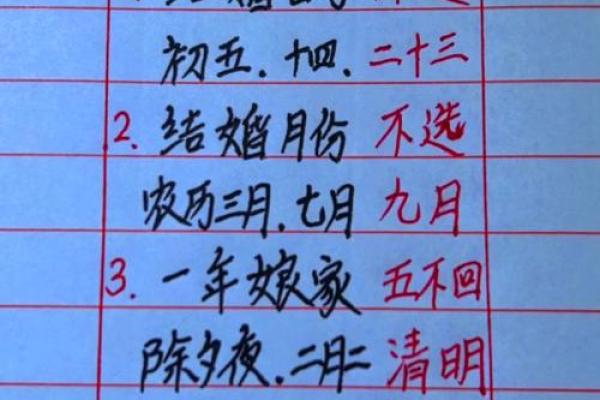 初五.十四.二十三
2.结婚月份 不选
农历三月.七月 九月
3.一年娘家 五不回
除夕夜.二月二 清明